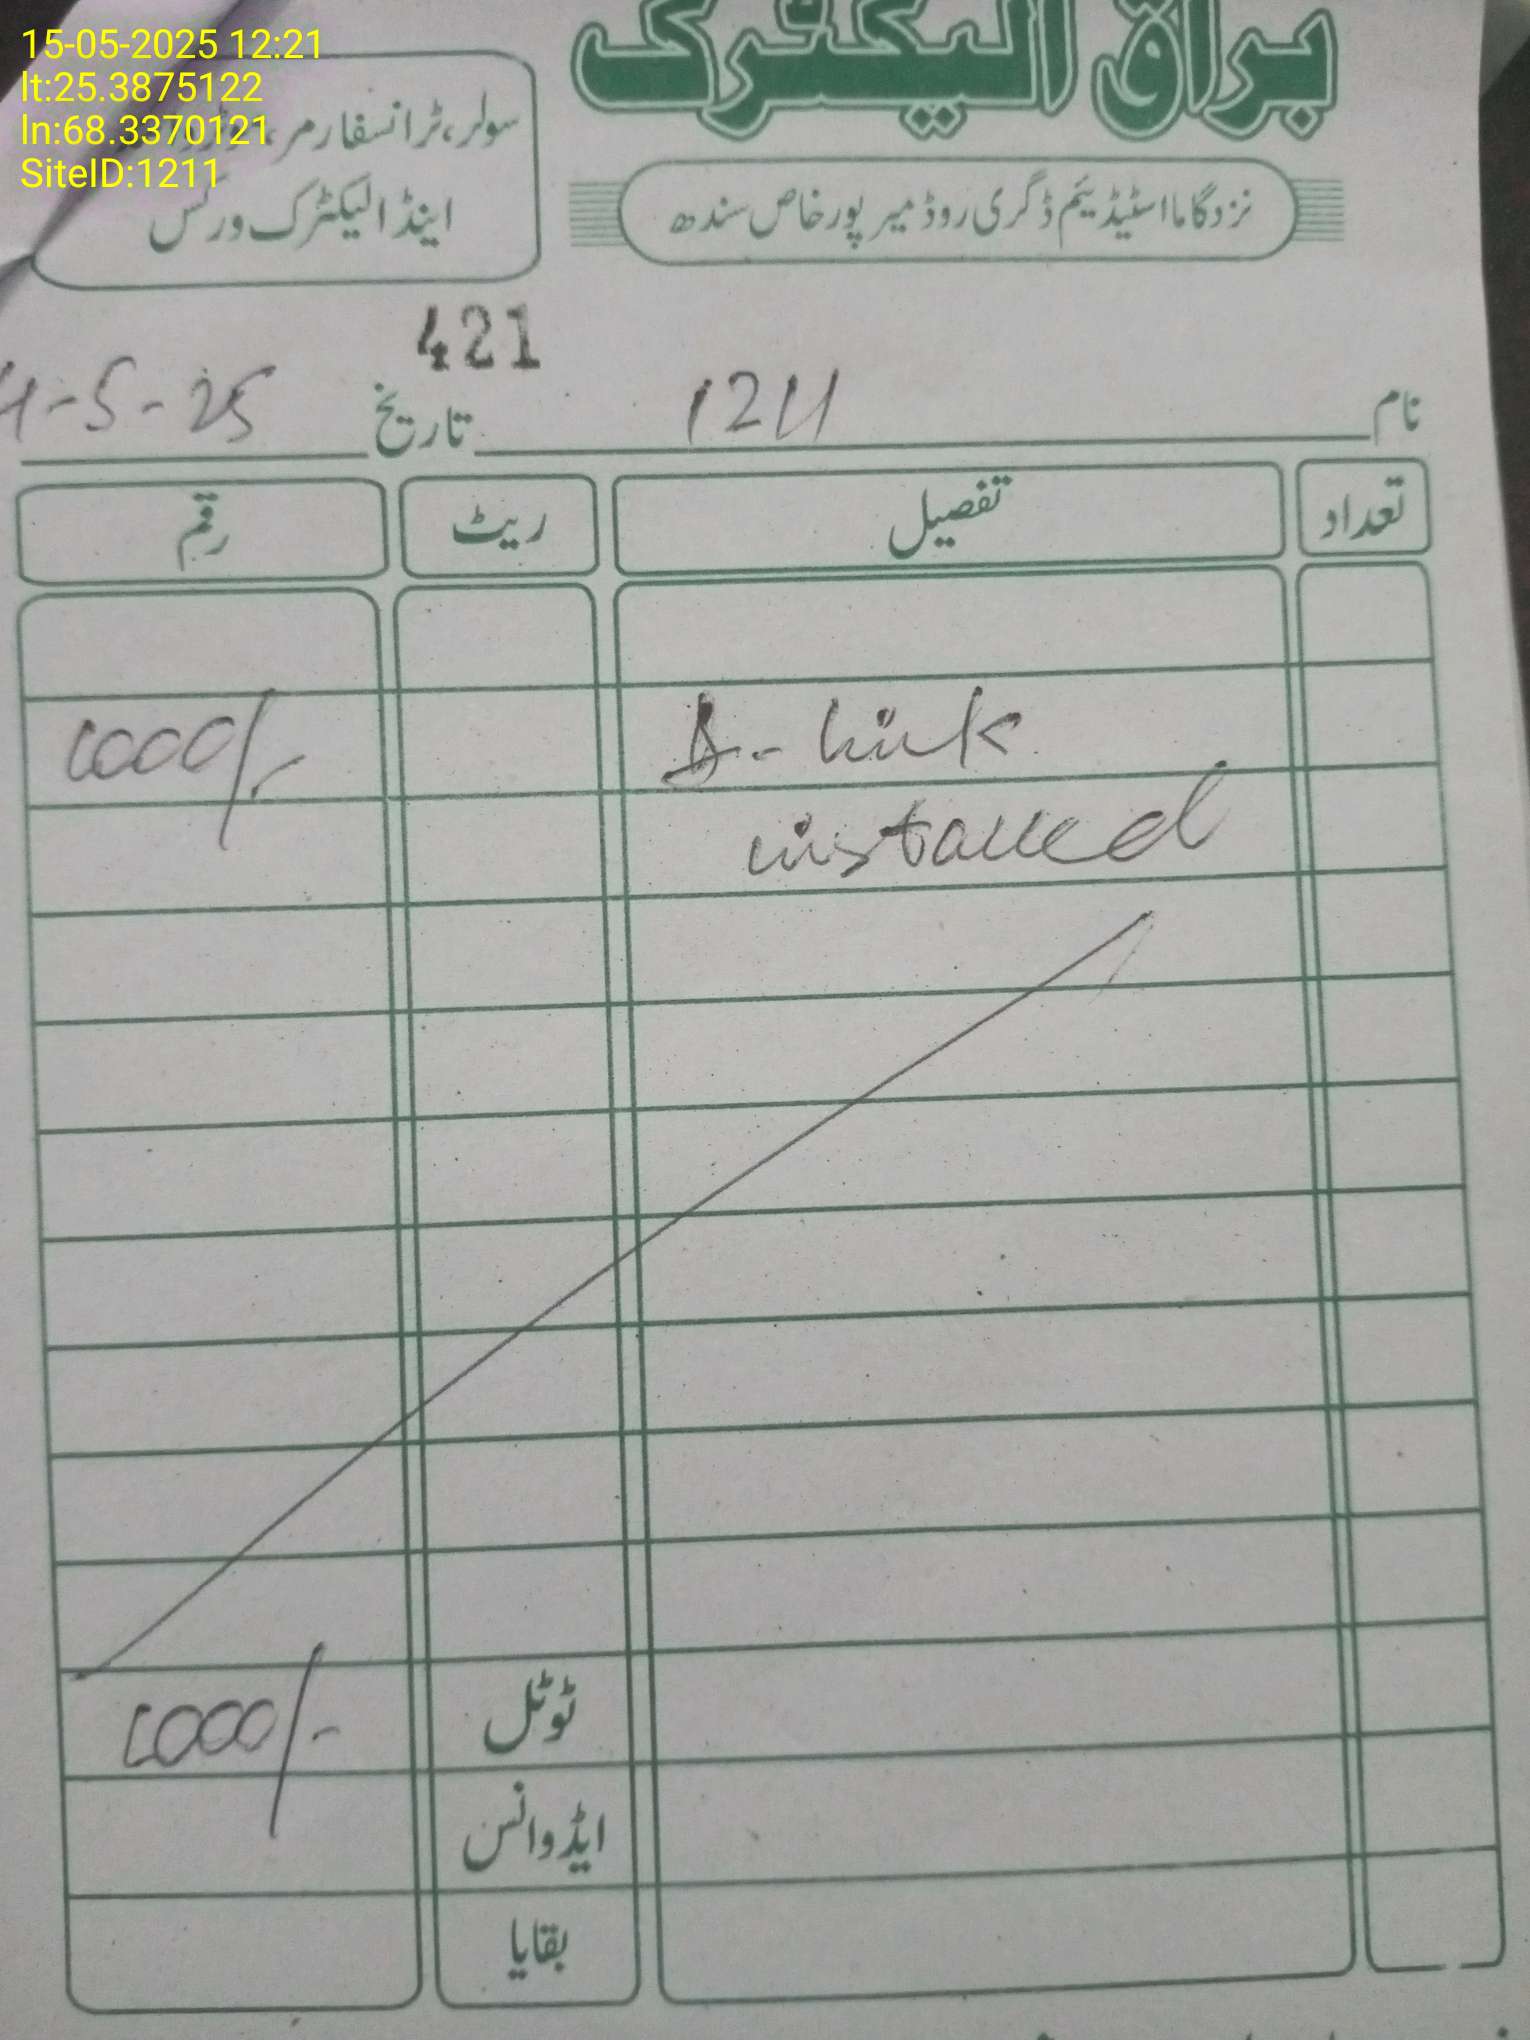 15-05-2025 12:21
lt:25.3875122
ln:68.3370121
SiteID:1211
براق الیکٹرک
سولر، ٹرانسفارمر،
اینڈ الیکٹرک ورکس
نزد گاما اسٹیڈیئم ڈگری روڈ میرپورخاص سندھ
421
نام 1211 تاریخ 4-5-25
تعداد تفصیل ریٹ رقم
D-link 1000/-
installed
ٹوٹل 1000/-
ایڈوانس
بقایا